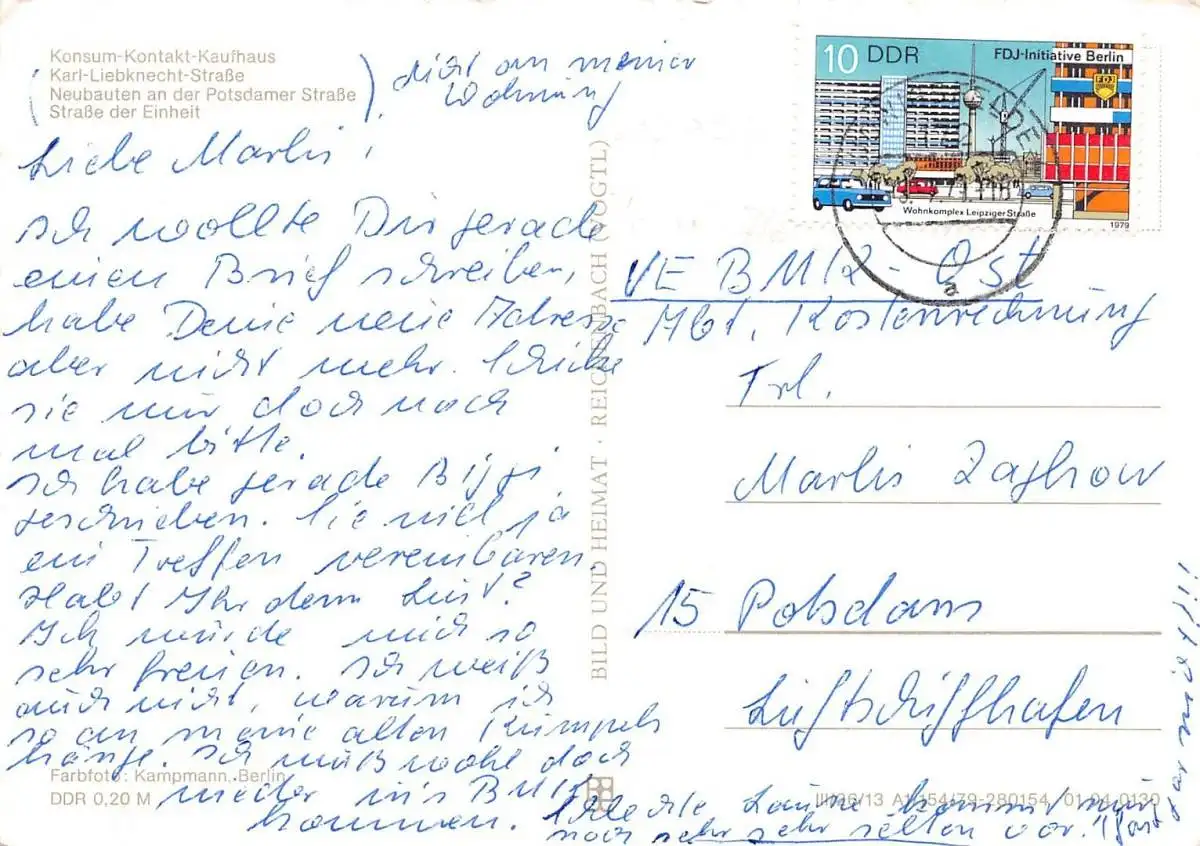 Konsum-Kontakt-Kaufhaus
Karl-Liebknecht-Straße
Neubauten an der Potsdamer Straße
Straße der Einheit
dicht an meiner
Wohnung
Liebe Marlis,
Ich wollte Dir gerade
einen Brief schreiben,
habe Deine neue Adresse
aber nicht mehr. Schicke
sie mir doch noch
mal bitte.
Ich habe gerade Biggi
geschrieben. Sie will ja
ein Treffen vereinbaren
Habt Ihr denn Lust?
Ich würde mich so
sehr freuen. Ich weiß
auch nicht, warum ich
so an meine alten Kumpels
hänge. Ich muß wohl doch
wieder in's BMK
kommen.
Schlechte Laune kommt mir
noch sehr sehr selten vor. (fast
gar nicht)
Farbfoto: Kampmann, Berlin
DDR 0,20 M
BILD UND HEIMAT · REICHENBACH (VOGTL)
III/26/13 A1/154/79-280154 01 04 0130
10 DDR
FDJ-Initiative Berlin
FDJ
Wohnkomplex Leipziger Straße
1979
a
VE BMK-Ost
Abt. Kostenrechnung
Frl.
Marlis
15 Potsdam
Luftschiffhafen